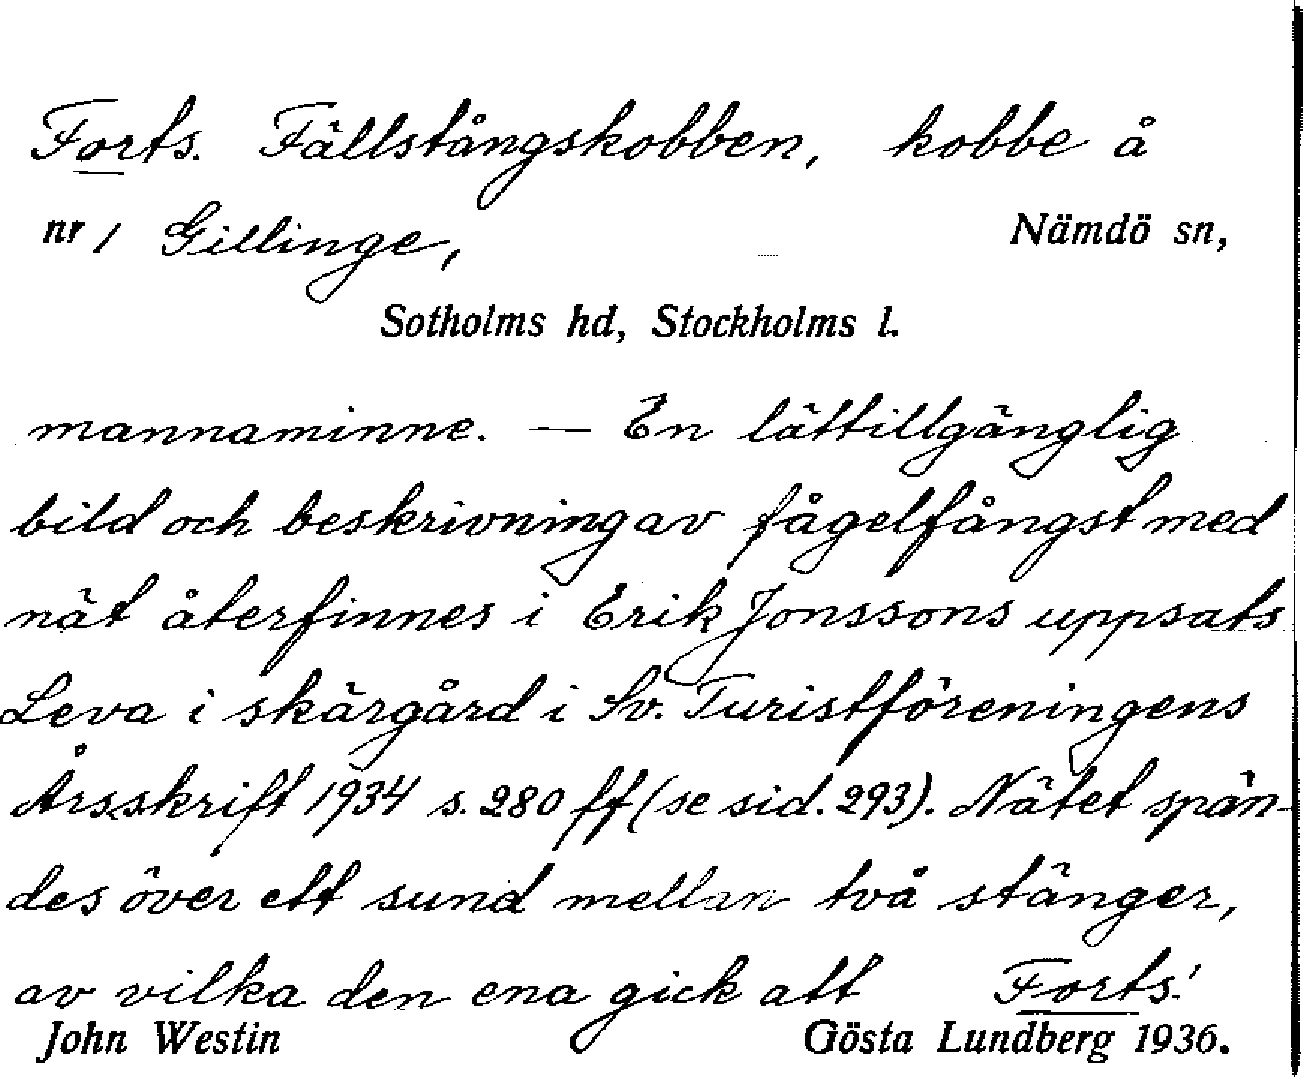 Forts. Fällstångskobben, kobbe å
nr 1 Gillinge, Nämdö sn,
Sotholms hd, Stockholms l.
mannaminne. — En lättillgänglig
bild och beskrivning av fågelfångst med
nät återfinnes i Erik Jonssons uppsats
Leva i skärgård i Sv. Turistföreningens
Årsskrift 1934 s. 280 ff (se sid. 293). Nätet spän-
des över ett sund mellan två stänger,
av vilka den ena gick att Forts!
John Westin Gösta Lundberg 1936.